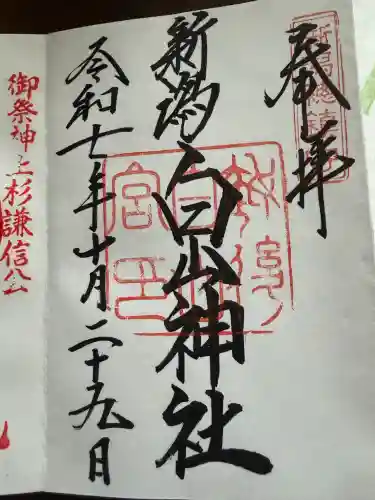 奉拝
新潟總鎮守
新潟白山神社
令和七年十月二十九日
御祭神上杉謙信公